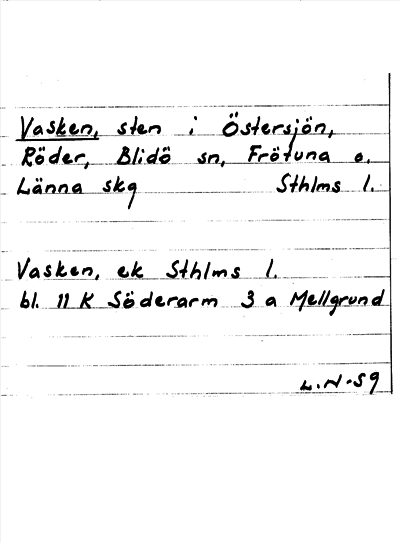 Vasken, sten i Östersjön,
Röder, Blidö sn, Frötuna o.
Länna skg Sthlms l.
Vasken, ek Sthlms l.
bl. 11 K Söderarm 3 a Mellgrund
L.N-S9